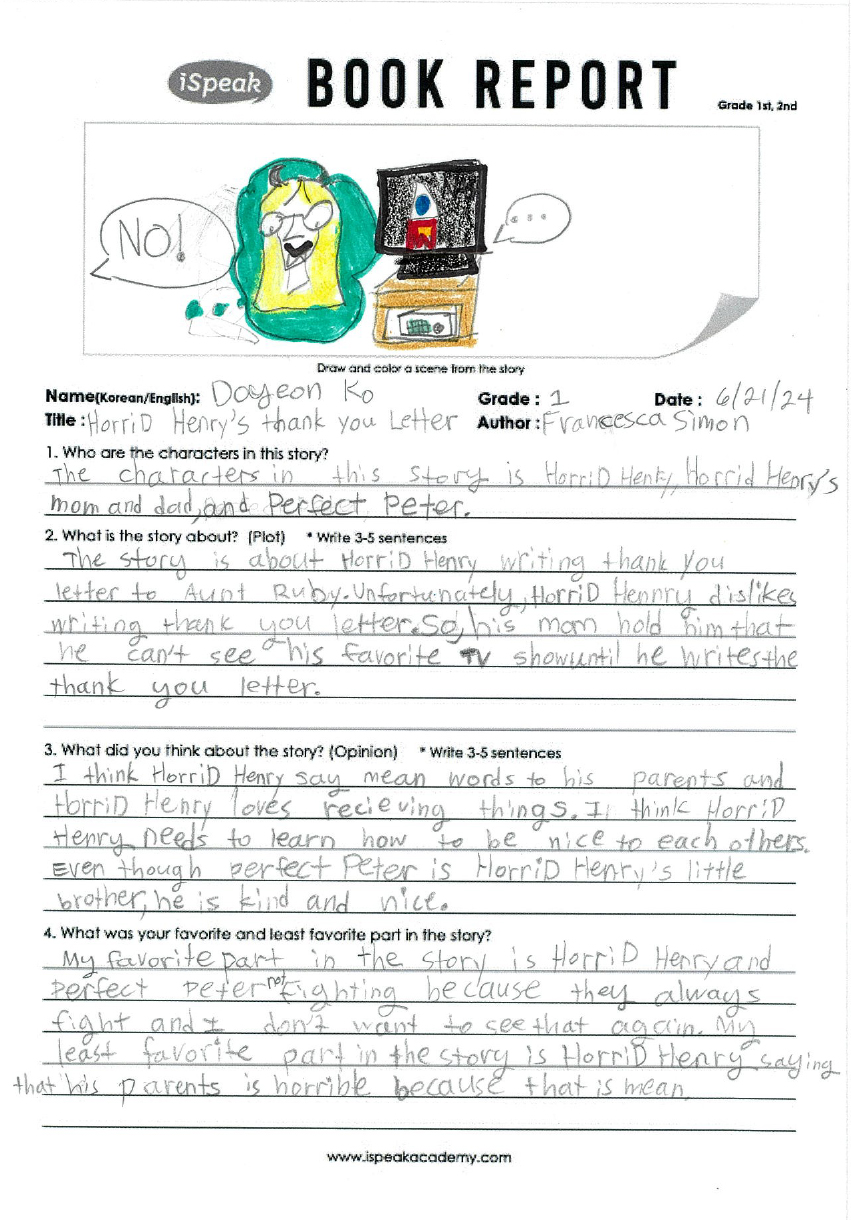 iSpeak BOOK REPORT
Grade 1st, 2nd
NO!
...
Draw and color a scene from the story
Name(Korean/English): Dayeon Ko Grade : 1 Date : 6/21/24
Title : HorriD Henry's thank you Letter Author : Francesca Simon
1. Who are the characters in this story?
The characters in this story is HorriD Henry, Horrid Henry's
mom and dad, and Perfect Peter.
2. What is the story about? (Plot) * Write 3-5 sentences
The story is about HorriD Henry writing thank you
letter to Aunt Ruby. Unfortunately, HorriD Hennry dislikes
writing thank you letter. So, his mom hold him that
he can't see his favorite TV show until he writes the
thank you letter.
3. What did you think about the story? (Opinion) * Write 3-5 sentences
I think HorriD Henry say mean words to his parents and
HorriD Henry loves recieving things. I think HorriD
Henry needs to learn how to be nice to each others.
Even though perfect Peter is HorriD Henry's little
brother, he is kind and nice.
4. What was your favorite and least favorite part in the story?
My favorite part in the story is HorriD Henry and
Perfect Peter not fighting because they always
fight and I don't want to see that again. My
least favorite part in the story is HorriD Henry saying
that his parents is horrible because that is mean.
www.ispeakacademy.com